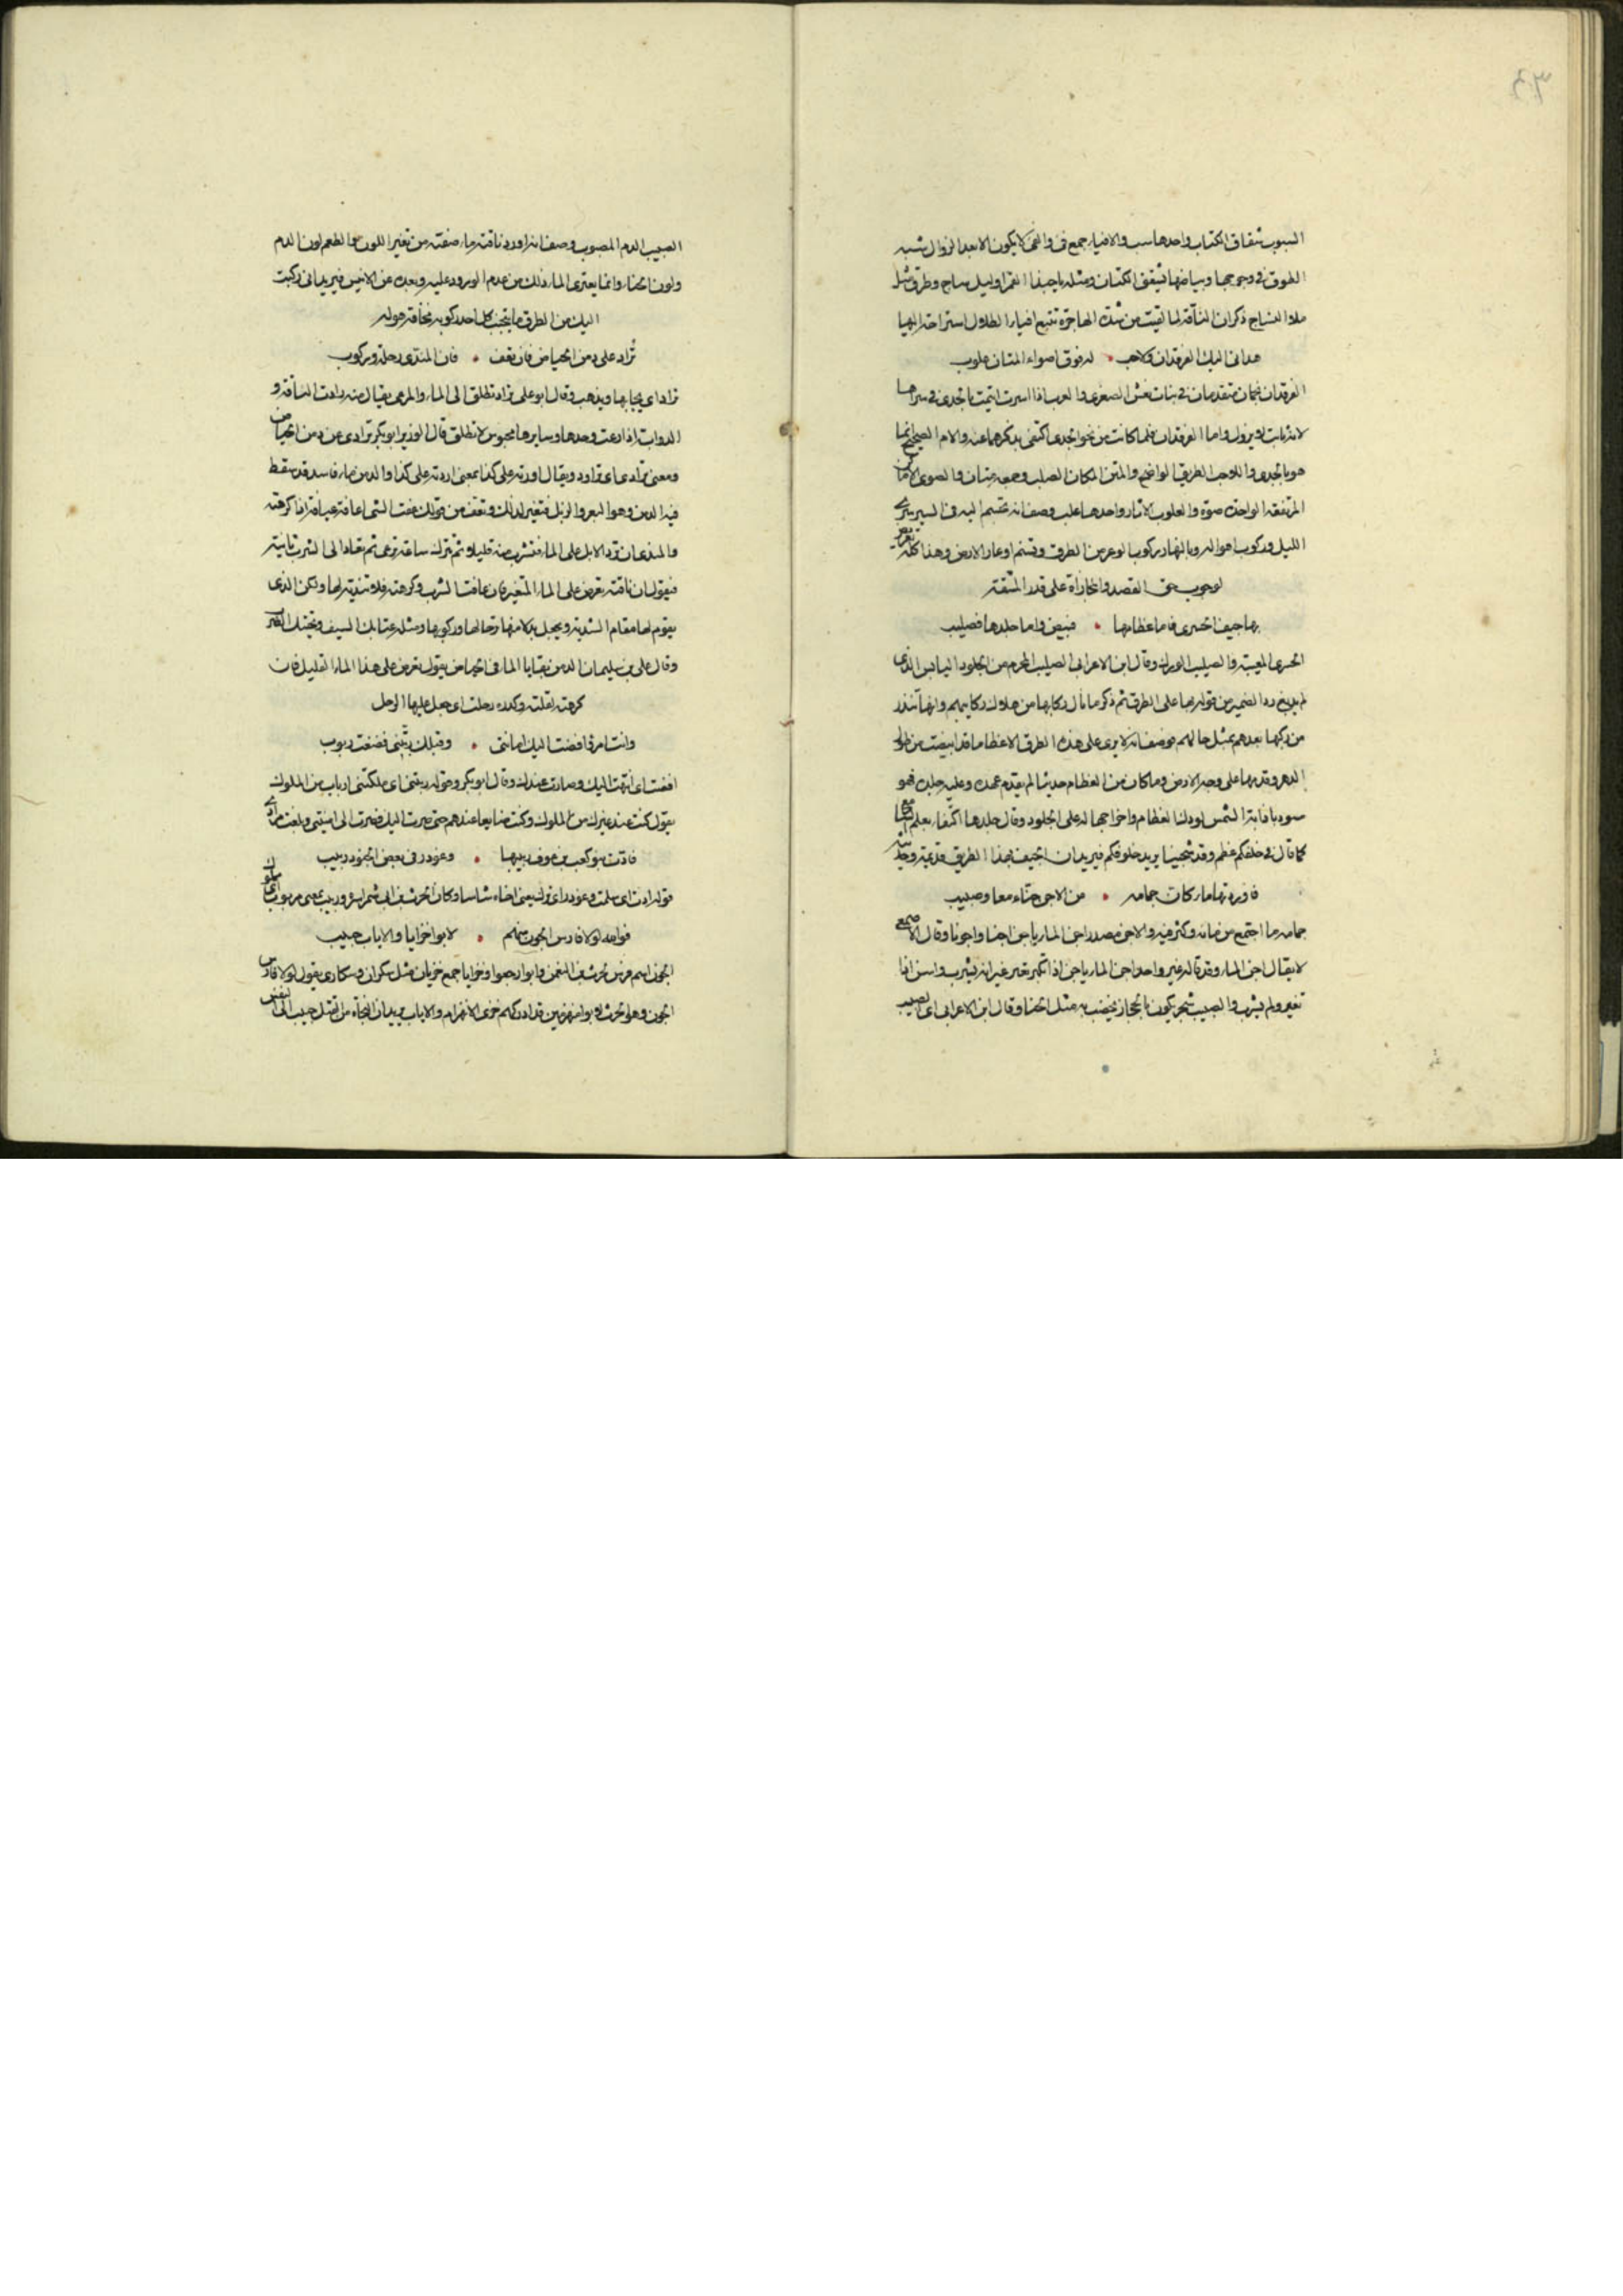 السبوب شقاق الكتاب واحدها سب والافياء جمع فئ والفئ لا يكون الا بعد الزوال شبه
الطرق في وجوبها وبياضها بشقق الكتان ومثله يا حبذا القمرا وليل ساج وطرق مثل
ملاء النساج ذكر ان الناقة لما لقيت من شدة الهاجرة تتبع افياء الظلال استراحة اليها
هداني اليك الفرقدان ولاحب • له فوق اصواء المتان علوب
الفرقدان نجمان متقدمان في بنات نعش الصغرى والعرب اذا اسرت ائتمت بالجدى في سراها
لانه ثابت لا يزول واما الفرقدان فلما كانت من نحو الجدى اكتفى بذكرهما عنه والام الصحيح انما
هو بالجدى واللاحب الطريق الواضح والمتن المكان الصلب وجمعه متان والصوى الاماكن
المرتفعة الواحدة صوة والعلوب الاثار واحدها علب وصف انه تجشم اليه في السير سرى
الليل وركوب اهواله وبالنهار ركوب الوعر من الطرق وتسنم اوعار الارض وهذا كله تعريض
لوجوب حق القصد والمجازاة على قدر المشقة
بها جيف الحسرى فاما عظامها • فبيض واما جلدها فصليب
الحسرى المعيية والصليب الودك وقال ابن الاعرابي الصليب المحرم من الجلود اليابس الذى
لم يدبغ رد الضمير من قوله بها على الطرق ثم ذكر ما نال ركابها من هلاك ركايبهم وانها تنذر
من ركبها بعدهم بمثل حالهم فوصف انه لا يرى على هذه الطرق الا عظاما قد ابيضت من طول
الدهر وقدمها على وجه الارض وما كان من العظام حديثا لم يقدم عهده وعليه جلده فهو
كما قال في حلقكم عظم وقد شجينا يريد حلوقكم فيريد ان الجيف بهذا الطريق قديمة وحديثة
فاوردتها ماء كان جمامه • من الاجن حناء معا وصبيب
جمامه ما اجتمع من مائه وكثر فيه والاجن مصدر اجن الماء ياجن اجنا واجونا وقال الاصمعي
لا يقال اجن الماء وقد قاله غير واحد اجن الماء ياجن اذا تغير غير انه يشرب واسن اذا
تغير ولم يشرب والصبيب شجر يكون بالحجاز يخضب به مثل الحنا وقال ابن الاعرابي اى الصبيب
الصبيب الدم المصبوب وصف انه اورد ناقته ماء صفته من تغير اللون والطعم لون الدم
ولون الحناء وانما يعترى الماء ذلك من عدم الورود عليه وبعده عن الانيس فيريد انى ركبت
اليك من الطرق ما يتجنب كل احد ركوبه مخافة هوله
تراد على دمن الحياض فان تعف • فان المندى رحلة وركوب
تراد اى يجا بها ويذهب وقال ابو على تراد تطلق الى الماء والمرعى يقال منه رادت الناقة و
الدواب اذا رعت وحدها وسايرها محبوس لا تطلق قال الوزير ابو بكر ترادى عن دمن الحياض
ومعنى ترادى اى تراود ويقال اوردته على كذا بمعنى اردته على كذا والدمن ماء فاسد قد سقط
فيه الدمن وهو البعر والزبل فتغير لذلك وتعف من قولك عفت الشى اعافه عيافة اذا كرهته
والمندى ان ترد الابل على الماء فتشرب منه قليلا ثم تترك ساعة ترعى ثم تعاد الى الشرب ثانية
فيقول ان ناقته تعرض على الماء المتغير فان عافت الشرب وكرهته فلا تندية لها ولكن الذى
يقوم لها مقام التندية ويجعل بدلا منها ترحالها وركوبها ومثله عتابك السيف وتحيتك
وقال على بن سليمان الدمن بقايا الماء فى الحياض يقول تعرض على هذا الماء القليل فان
كرهته اقلته وكده رحلت اى جعل عليها الرحل
وانت امرؤ افضت اليك امانتى • وقبلك ربتنى فضعت ربوب
افضت اى انتهت اليك وصارت عندك وقال ابو بكر وقوله ربتنى اى ملكتنى ارباب من الملوك
يقول كنت عند غيرك من الملوك وكنت ضايعا عندهم حتى صرت اليك فصرت الى امنيتى وبلغت مرادى
فادت بنو كعب بن عوف ربيبها • وغودر فى بعض الجنود ربيب
فوالله لولا فارس الجون منهم • لابوا خزايا والاياب حبيب
الجون اسم فرس الحرث وابوا رجعوا وخزايا جمع خزيان مثل سكران وسكارى يقول لولا فارس